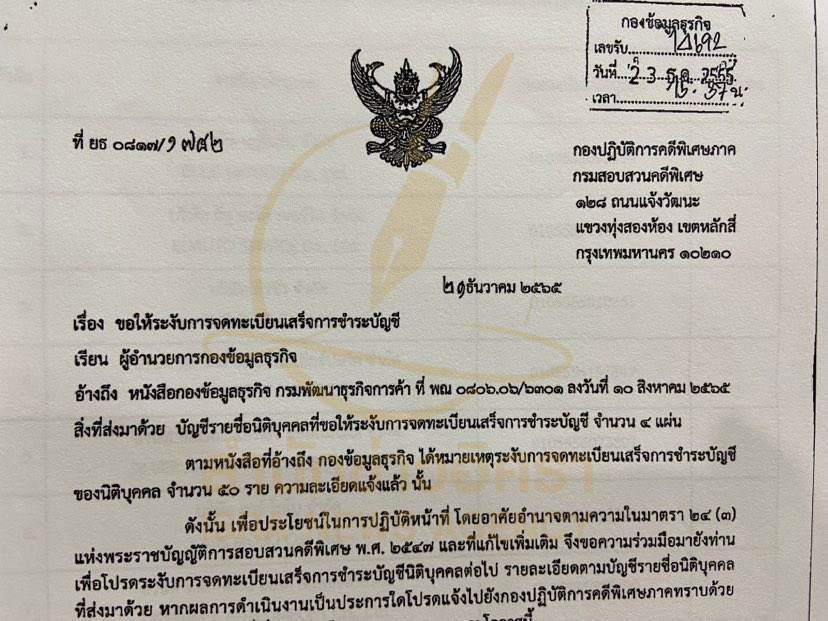 กองข้อมูลธุรกิจ
เลขรับ
วันที่ 23 ธ.ค. 2565
เวลา น.
ที่ ยธ ๐๘๑๗/๑๗๕๒
กองปฏิบัติการคดีพิเศษภาค
กรมสอบสวนคดีพิเศษ
๑๒๘ ถนนแจ้งวัฒนะ
แขวงทุ่งสองห้อง เขตหลักสี่
กรุงเทพมหานคร ๑๐๒๑๐
๒๑ ธันวาคม ๒๕๖๕
เรื่อง ขอให้ระงับการจดทะเบียนเสร็จการชำระบัญชี
เรียน ผู้อำนวยการกองข้อมูลธุรกิจ
อ้างถึง หนังสือกองข้อมูลธุรกิจ กรมพัฒนาธุรกิจการค้า ที่ พณ ๐๘๐๖.๐๖/๖๓๐๑ ลงวันที่ ๑๐ สิงหาคม ๒๕๖๕
สิ่งที่ส่งมาด้วย บัญชีรายชื่อนิติบุคคลที่ขอให้ระงับการจดทะเบียนเสร็จการชำระบัญชี จำนวน ๔ แผ่น
ตามหนังสือที่อ้างถึง กองข้อมูลธุรกิจ ได้หมายเหตุระงับการจดทะเบียนเสร็จการชำระบัญชี
ของนิติบุคคล จำนวน ๕๐ ราย ความละเอียดแจ้งแล้ว นั้น
ดังนั้น เพื่อประโยชน์ในการปฏิบัติหน้าที่ โดยอาศัยอำนาจตามความในมาตรา ๒๔ (๓)
แห่งพระราชบัญญัติการสอบสวนคดีพิเศษ พ.ศ. ๒๕๔๗ และที่แก้ไขเพิ่มเติม จึงขอความร่วมมือมายังท่าน
เพื่อโปรดระงับการจดทะเบียนเสร็จการชำระบัญชีนิติบุคคลต่อไป รายละเอียดตามบัญชีรายชื่อนิติบุคคล
ที่ส่งมาด้วย หากผลการดำเนินงานเป็นประการใดโปรดแจ้งไปยังกองปฏิบัติการคดีพิเศษภาคทราบด้วย